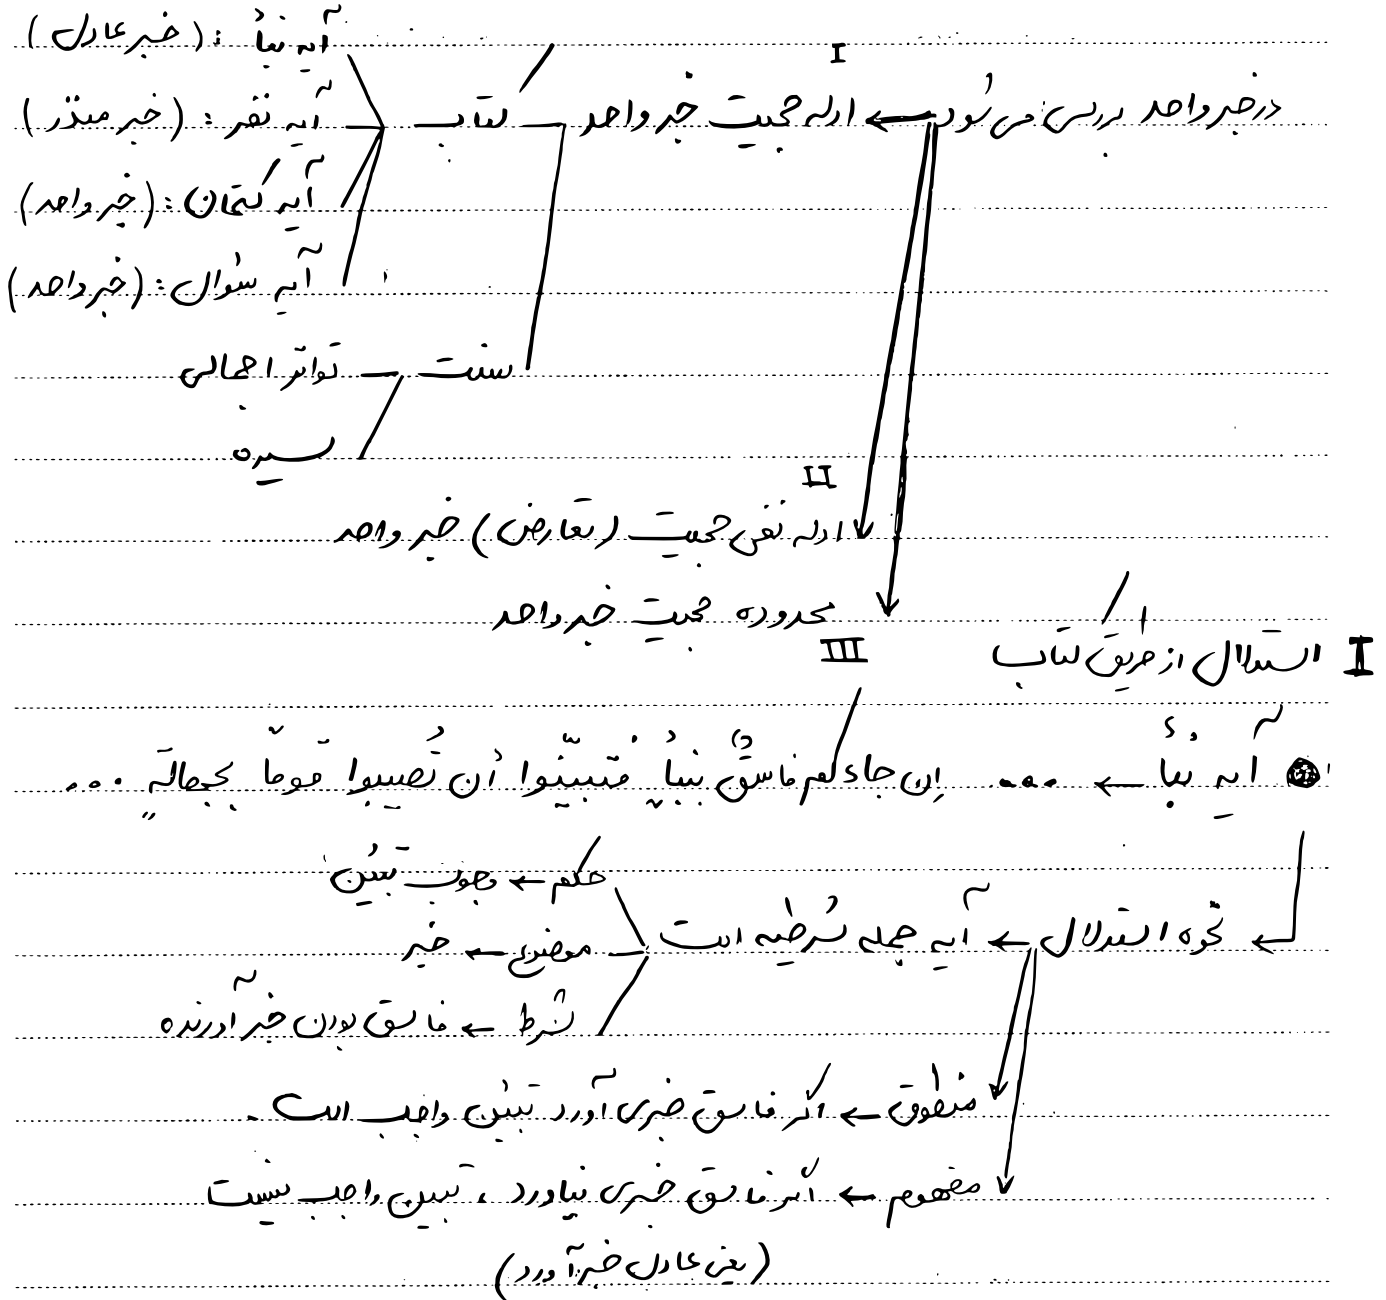 آیه نبأ : (خبر عادل)
I
در خبر واحد بررسی می شود ← ادله حجیت خبر واحد — کتاب — آیه نفر : (خبر منذر)
آیه کتمان : (خبر واحد)
آیه سؤال : (خبر واحد)
سنت — تواتر اجمالی
سیره
II
ادله نفی حجیت (تعارض) خبر واحد
محدوده حجیت خبر واحد
III
I استدلال از طریق کتاب
آیه نبأ ← .... إن جاءکم فاسقٌ بنبأٍ فتبیّنوا أن تُصیبوا قوماً بجهالةٍ ...
حکم ← وجوب تبیّن
نحوه استدلال ← آیه جمله شرطیه است — موضوع ← خبر
شرط ← فاسق بودن خبر آورنده
منطوق ← اگر فاسق خبری آورد تبیّن واجب است .
مفهوم ← اگر فاسق خبری نیاورد ، تبیین واجب نیست
(یعنی عادل خبر آورد)